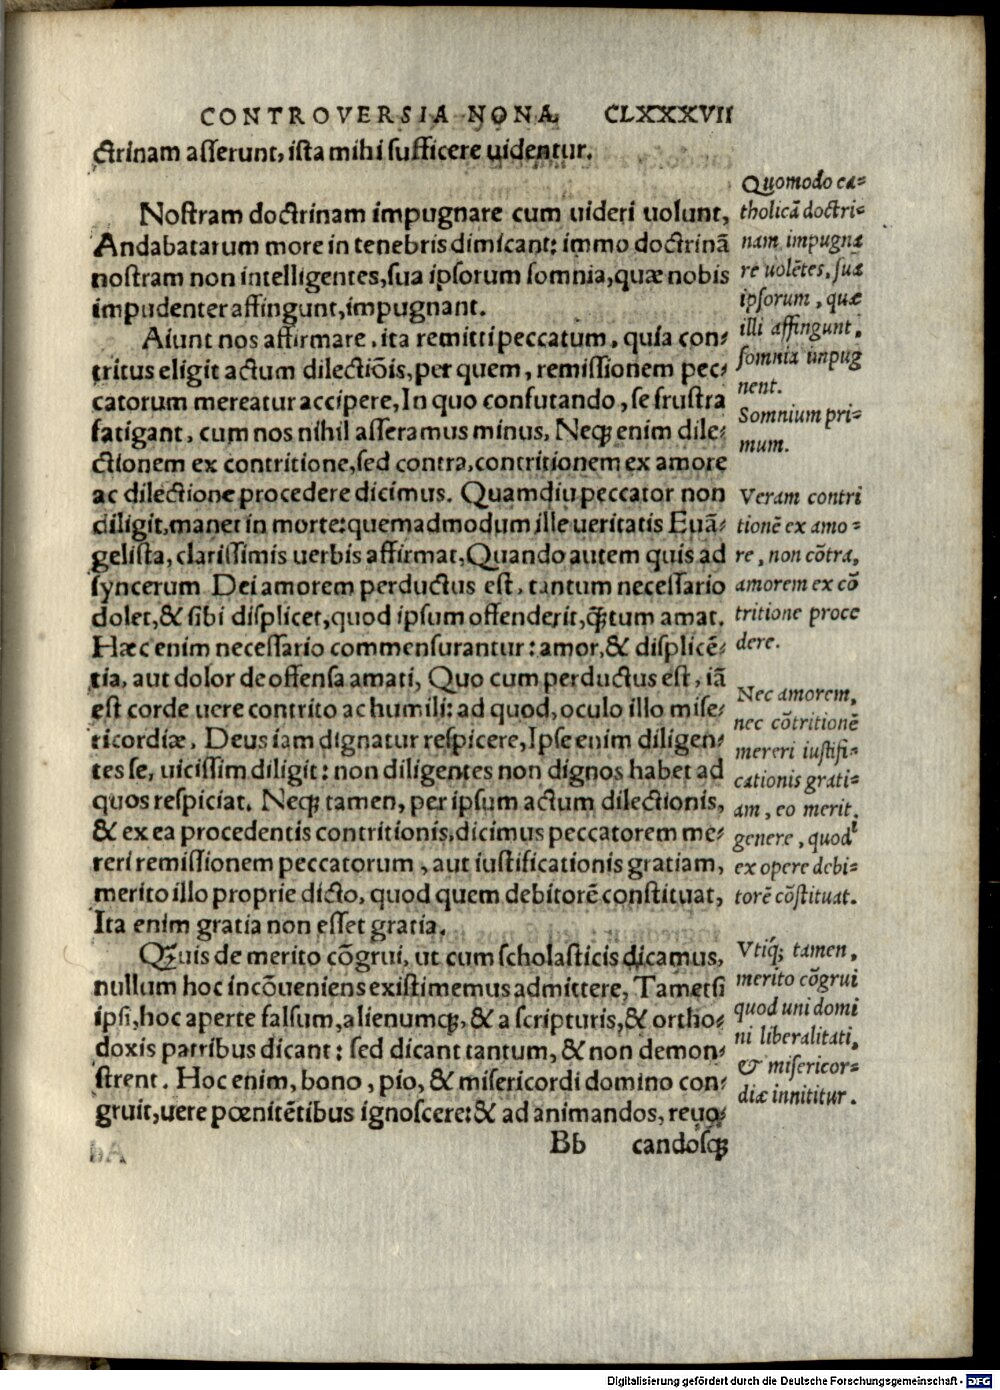 CONTROVERSIA NONA. CLXXXVII
ctrinam asserunt, ista mihi sufficere uidentur.
Nostram doctrinam impugnare cum uideri uolunt,
Andabatarum more in tenebris dimicant: immo doctrinā
nostram non intelligentes, sua ipsorum somnia, quæ nobis
impudenter affingunt, impugnant.
Aiunt nos affirmare, ita remitti peccatum, quia con-
tritus eligit actum dilectiōis, per quem, remissionem pec-
catorum mereatur accipere, In quo confutando, se frustra
fatigant, cum nos nihil asseramus minus. Neq; enim dile-
ctionem ex contritione, sed contra, contritionem ex amore
ac dilectione procedere dicimus. Quamdiu peccator non
diligit, manet in morte: quemadmodum ille ueritatis Euā-
gelista, clarissimis uerbis affirmat, Quando autem quis ad
syncerum Dei amorem perductus est, tantum necessario
dolet, & sibi displicet, quod ipsum offenderit, q̄tum amat.
Hæc enim necessario commensurantur: amor, & displicē-
tia, aut dolor de offensa amati, Quo cum perductus est, iā
est corde uere contrito ac humili: ad quod, oculo illo mise-
ricordiæ, Deus iam dignatur respicere, Ipse enim diligen-
tes se, uicissim diligit: non diligentes non dignos habet ad
quos respiciat. Neq; tamen, per ipsum actum dilectionis,
& ex ea procedentis contritionis, dicimus peccatorem me-
reri remissionem peccatorum, aut iustificationis gratiam,
merito illo proprie dicto, quod quem debitorē constituat,
Ita enim gratia non esset gratia.
Q̄uis de merito cōgrui, ut cum scholasticis dicamus,
nullum hoc incōueniens existimemus admittere, Tametsi
ipsi, hoc aperte falsum, alienumq;, & a scripturis, & ortho-
doxis patribus dicant: sed dicant tantum, & non demon-
strent. Hoc enim, bono, pio, & misericordi domino con-
gruit, uere pœnitētibus ignoscere: & ad animandos, reuo-
Bb candosq;
Quomodo ca-
tholicā doctri-
nam impugna
re uolētes, sua
ipsorum, quæ
illi affingunt,
somnia impug
nent.
Somnium pri-
mum.
Veram contri
tionē ex amo-
re, non cōtra,
amorem ex cō
tritione proce
dere.
Nec amorem,
nec cōtritionē
mereri iustifi-
cationis grati-
am, eo merit.
genere, quod
ex opere debi-
torē cōstituat.
Vtiq; tamen,
merito cōgrui
quod uni domi
ni liberalitati,
& misericor-
diæ innititur.
Digitalisierung gefördert durch die Deutsche Forschungsgemeinschaft - DFG